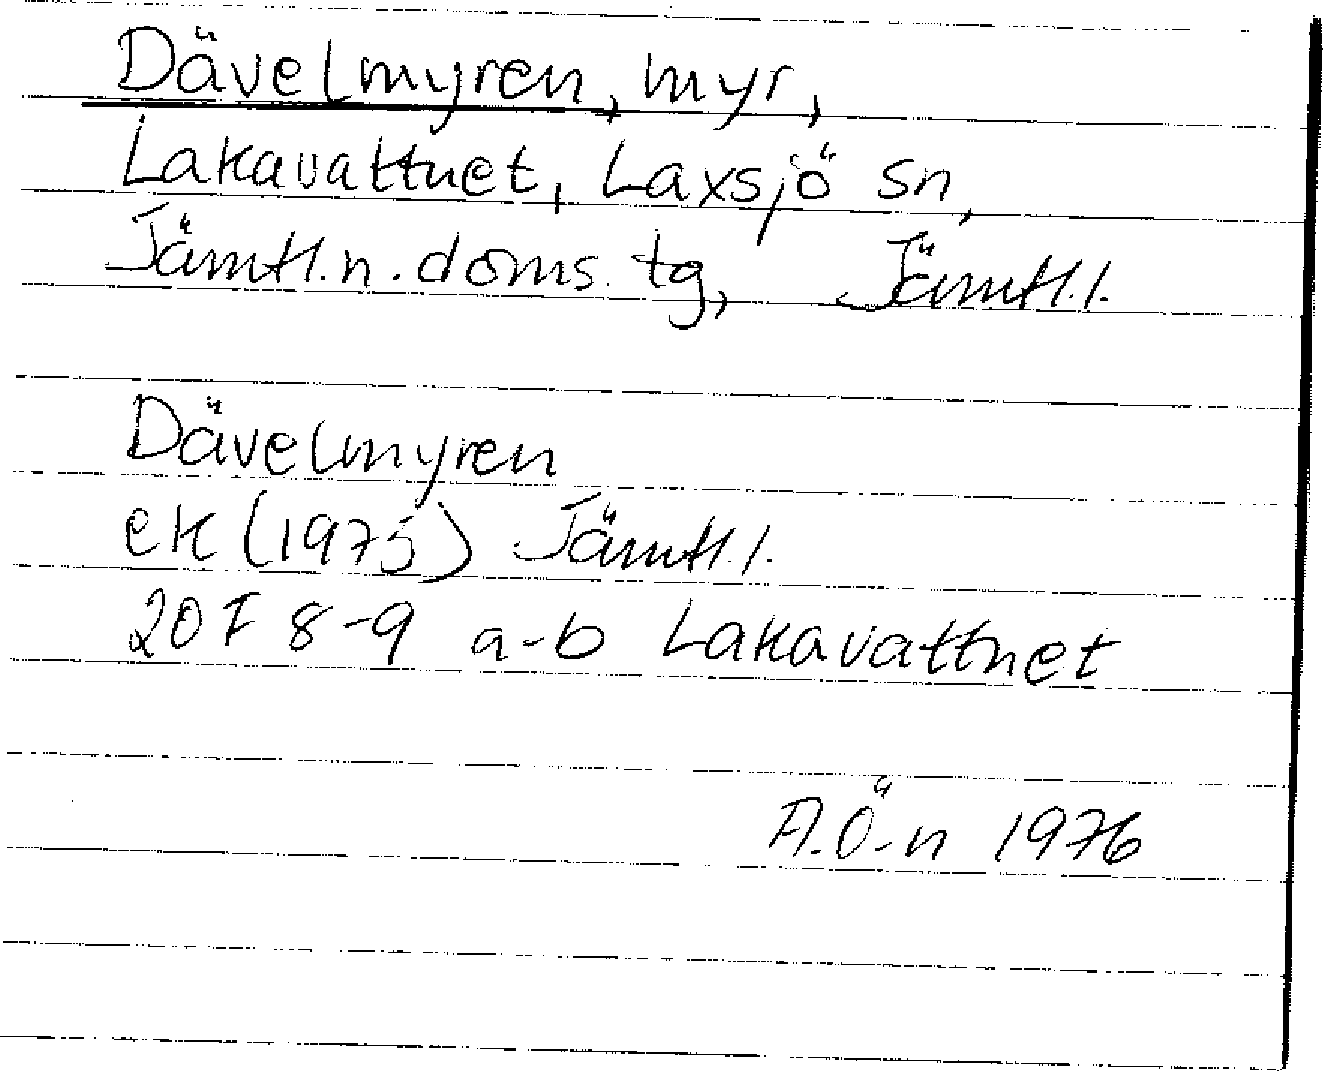 Dävelmyren, myr,
Lakavattnet, Laxsjö sn,
Jämtl.n.doms.tg, Jämtl.l.
Dävelmyren
ek (1975) Jämtl.l.
20F 8-9 a-b Lakavattnet
A.Ö-n 1976